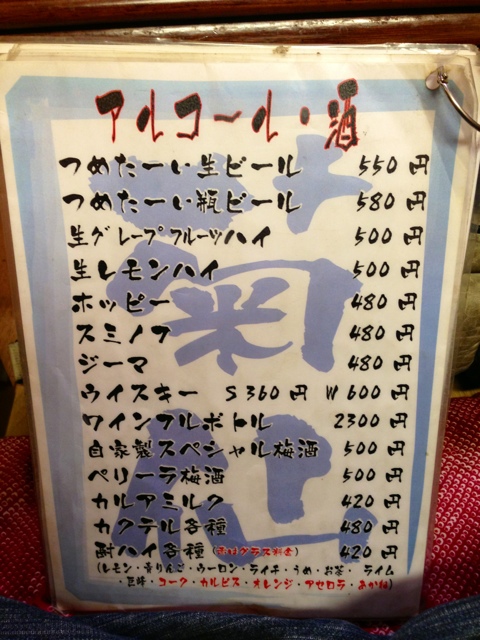 アルコール・酒
つめたーい生ビール 550円
つめたーい瓶ビール 580円
生グレープフルーツハイ 500円
生レモンハイ 500円
ホッピー 480円
スミノフ 480円
ジーマ 480円
ウイスキー S 360円 W 600円
ワインフルボトル 2300円
自家製スペシャル梅酒 500円
ペリーラ梅酒 500円
カルアミルク 420円
カクテル各種 480円
酎ハイ各種 420円
(レモン・青りんご・ウーロン・ライチ・うめ・お茶・ライム
・巨峰・コーク・カルピス・オレンジ・アセロラ・あかね)